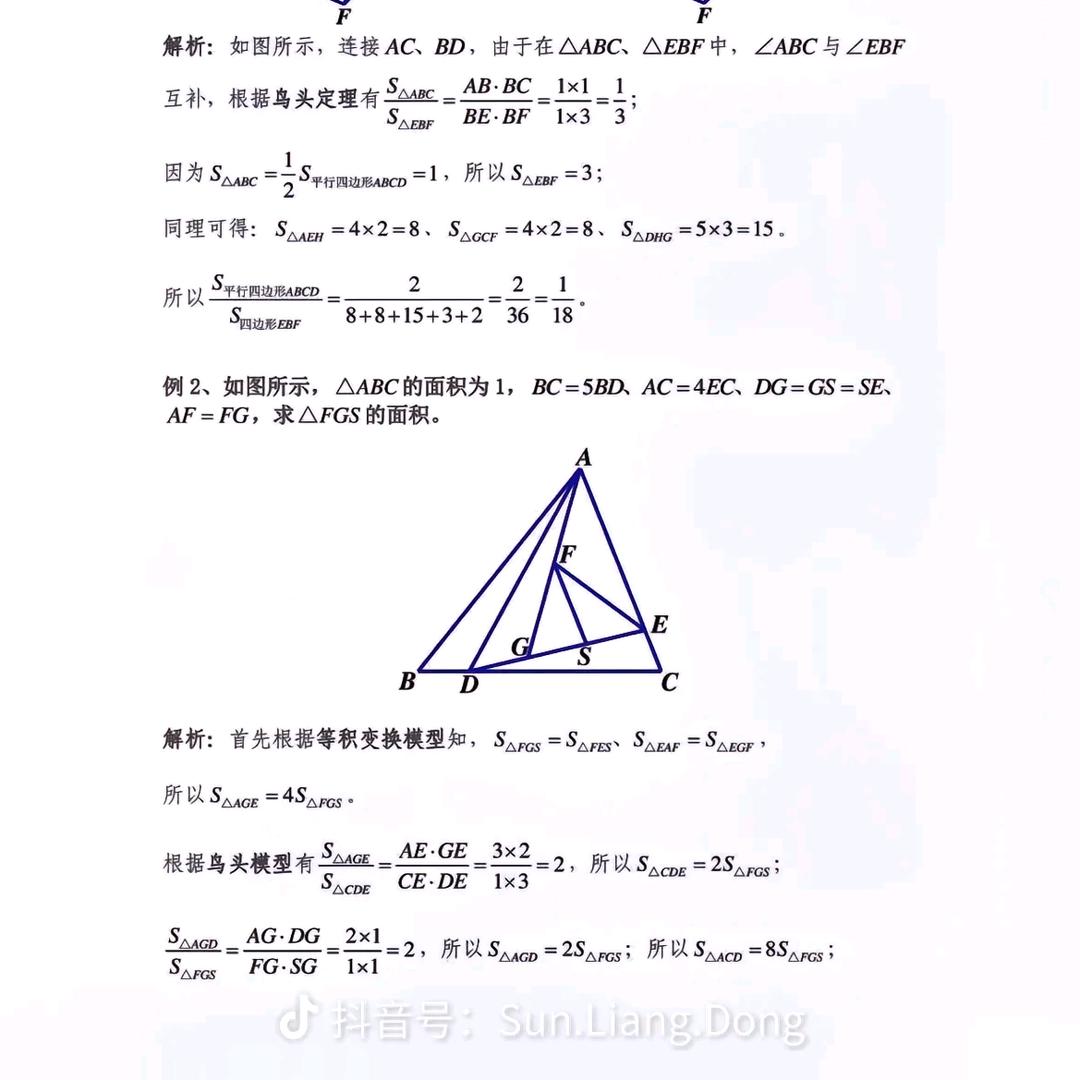 F F
解析：如图所示，连接 AC、BD，由于在 △ABC、△EBF 中，∠ABC 与 ∠EBF
互补，根据鸟头定理有 S△ABC/S△EBF = AB·BC/BE·BF = 1×1/1×3 = 1/3；
因为 S△ABC = 1/2 S平行四边形ABCD = 1，所以 S△EBF = 3；
同理可得：S△AEH = 4×2 = 8、S△GCF = 4×2 = 8、S△DHG = 5×3 = 15。
所以 S平行四边形ABCD/S四边形EBF = 2/8+8+15+3+2 = 2/36 = 1/18。
例 2、如图所示，△ABC 的面积为 1，BC = 5BD、AC = 4EC、DG = GS = SE、
AF = FG，求 △FGS 的面积。
A
F
E
G
S
B D C
解析：首先根据等积变换模型知，S△FGS = S△FES、S△EAF = S△EGF，
所以 S△AGE = 4S△FGS。
根据鸟头模型有 S△AGE/S△CDE = AE·GE/CE·DE = 3×2/1×3 = 2，所以 S△CDE = 2S△FGS；
S△AGD/S△FGS = AG·DG/FG·SG = 2×1/1×1 = 2，所以 S△AGD = 2S△FGS；所以 S△ACD = 8S△FGS；
抖音号：Sun.Liang.Dong